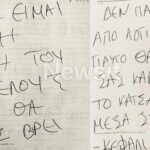 ΕΙΜΑΙ
Η
Η ΤΟΥ
ΕΛΟΥΣ
ΘΑ
Σ ΒΡΕΙ
ΔΕΝ ΠΑ
ΑΠΟ ΛΟΓΙ
ΓΙΑΥΤΟ ΘΑ
ΣΑΣ ΚΑ
ΤΟ ΚΑΤΣΑ
ΜΕΣΑ Σ
ΚΕΦΑΛΙ